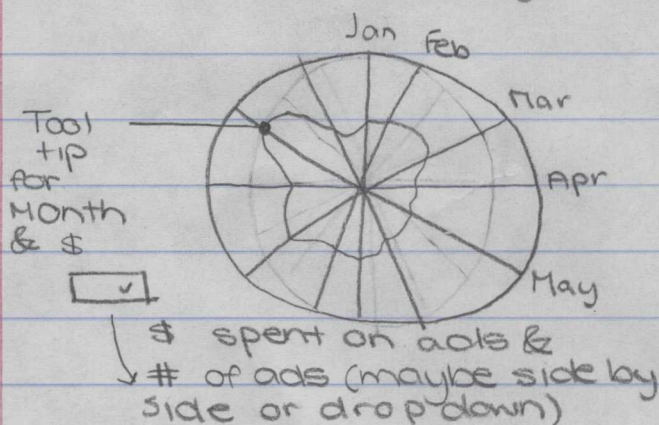 Jan
Feb
Mar
Apr
May
Tool
tip
for
Month
& $
$ spent on ads &
# of ads (maybe side by
side or drop down)